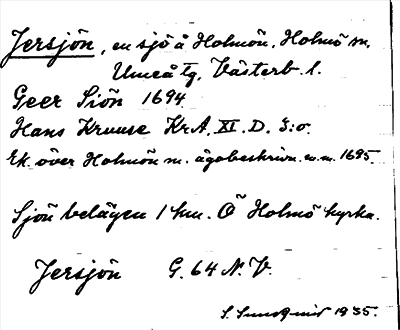 Jersjön, en sjö å Holmön, Holmö sn,
Umeå tg, Västerb. l.
Geer Siön 1694
Hans Kruuse KrA. XI. D. 3:o.
Ek. över Holmön m. ägobeskrivn. m.m. 1695.
Sjön belägen 1 km. Ö Holmö kyrka.
Jersjön G. 64 N. V.
S. Sundqvist 1935.